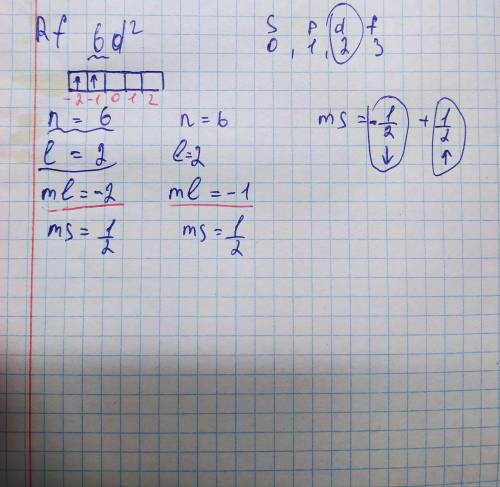 Rf 6d²
s p d f
0, 1, 2 3
↑ ↑
-2 -1 0 1 2
n = 6 n = 6
l = 2 l = 2
ml = -2 ml = -1
ms = 1/2 ms = 1/2
ms = -1/2 + 1/2
↓ ↑